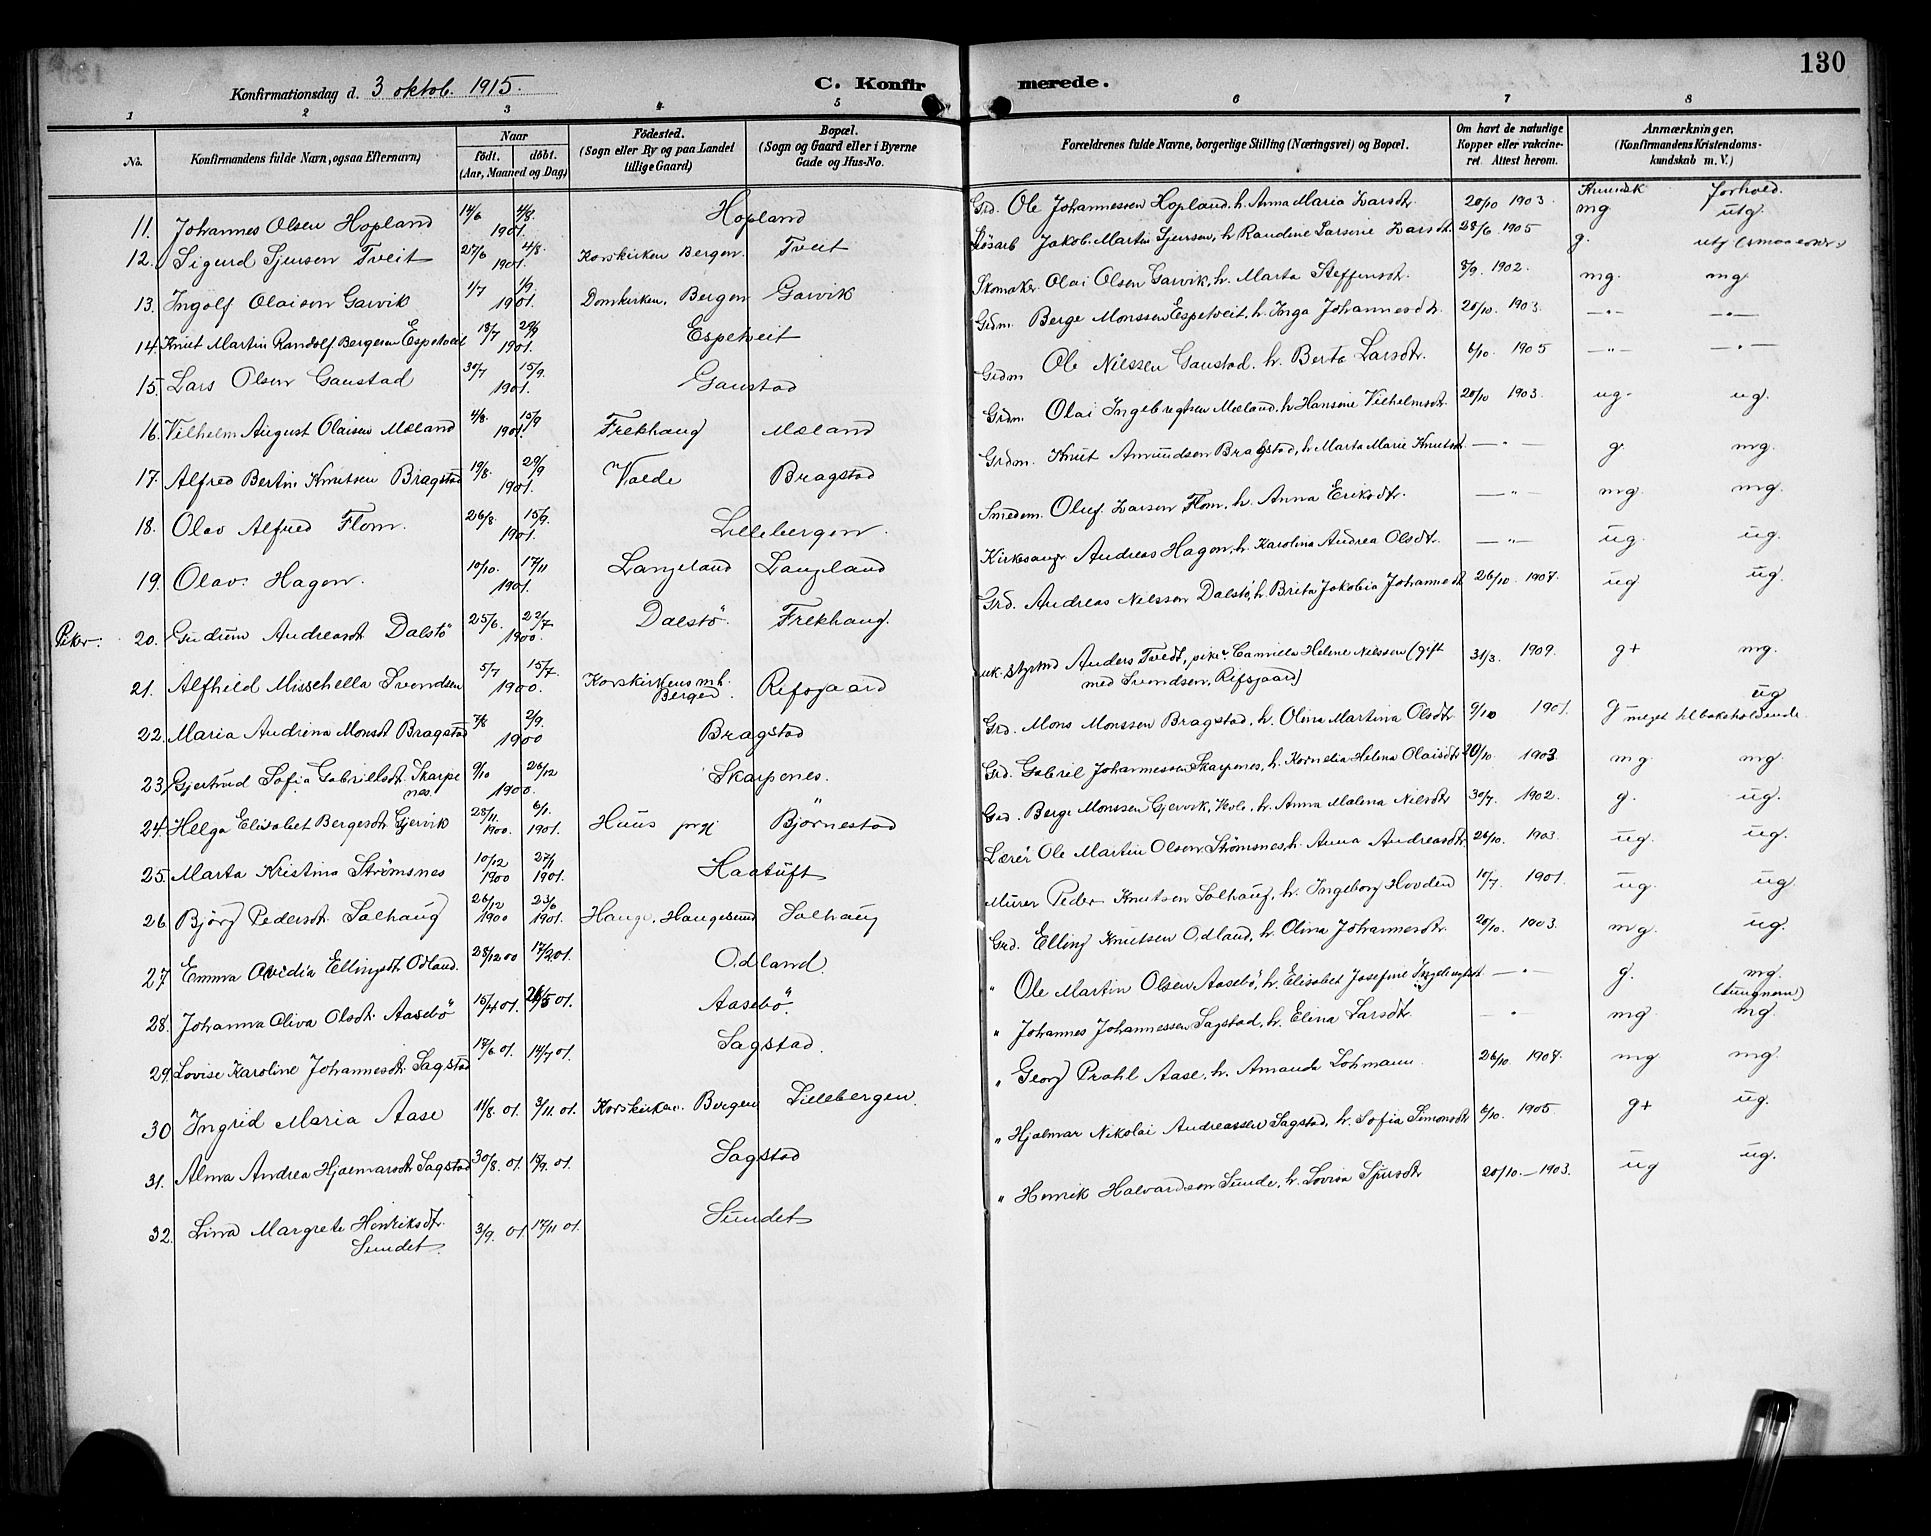 130
Konfirmationsdag d. 3 oktob. 1915.
C. Konfirmerede.
1 2 3 4 5 6 7 8
No. Konfirmandens fulde Navn, ogsaa Efternavn) Naar födt. döbt. (Aar, Maaned og Dag) Födested. (Sogn eller By og paa Landet tillige Gaard) Bopæl. (Sogn og Gaard eller i Byerne Gade og Hus-No. Forældrenes fulde Navne, borgerlige Stilling (Næringsvei) og Bopæl. Om havt de naturlige Kopper eller vakcineret. Attest herom. Anmærkninger. (Konfirmandens Kristendomskundskab m. V.)
Kundsk forhold.
11. Johannes Olsen Hopland 14/6 4/8. 1901. Hopland Grd. Ole Johannessen Hopland, h. Anna Maria Larsdtr. 20/10 1903. mg utg.
12. Sigurd Sjursen Tveit 27/6 4/8. 1901. Korskirken Bergen. Tveit Løsarb Jakob Martin Sjursen, h. Randine Larsine Larsdt. 28/6 1905 g.
13. Ingolf Olaisen Garvik 1/7 1/9. 1901. Domkirken, Bergen Garvik Skomaker Olai Olsen Garvik, h. Marta Steffensdt. 8/9. 1902. mg. mg
14. Knut Martin Randolf Bergesen Espetveit 13/7 29/9 1901. Espetveit Grdm. Berge Monssen Espetveit, h. Inga Johannesdtr. 20/10 1903. —„— —„—
15. Lars Olsen Gaustad 30/7 15/9. 1901. Gaustad Grdm Ole Nilssen Gaustad, h. Berta Larsdtr. 6/10. 1905 —„— —„—
16. Vilhelm August Olaisen Mæland 4/8. 15/9 1901. Frekhaug Mæland Grdm. Olai Ingebregtsen Mæland, h. Hansine Vilhelmsdt. 20/10 1903. ug. ug.
17. Alfred Bertin Knutsen Bragstad 19/8. 29/9 1901. Valde Bragstad Grdm. Knut Amundsen Bragstad, h. Marta Marie Knutsdt. —„— g. mg.
18. Olav Alfred Flom. 26/8. 15/9. 1901. Lillebergen. Smedem. Oluf Larsen Flom, h. Anna Eriksdt. —„— mg. mg.
19. Olav Hagen. 10/10. 17/11 1901. Langeland Langeland Kirkesangr Andreas Hagen, h. Karolina Andrea Olsdt. —„— ug. ug.
Piker. 20. Gudrun Andreasdt. Dalstö 25/6. 22/7 1900. Dalstö. Frekhaug. Grd. Andreas Nilssen Dalstø, h. Brita Jakobia Johannesdt 26/10 1907. ug ug.
21. Alfhild Missehella Svendsen 5/7 15/7. 1900. Korskirkens mh. Bergen. Refsgaard uk. styrmd Anders Tvedt, pike Camilla Helene Nilssen (gift med Svendsen, Rifsgaard) 31/3. 1909. g+ mg.
22. Maria Andrina Monsdt Bragstad 7/8 2/9. 1900 Bragstad Grd. Mons Monssen Bragstad, h. Olina Martina Olsdt. 9/10 1901. g meget tilbakeholdende. ug
23. Gjertrud Sofia Gabrielsdt. Skarpenes. 9/10 26/12 1900. Skarpenes. Grd. Gabriel Johannessen Skarpenes, h. Kornelia Helena Olaisdt 20/10. 1903. mg. mg.
24. Helga Elisabet Bergesdt. Gjervik 28/11. 1900. 6/1. 1901. Huus prgj Björnestad Grd. Berge Monssen Gjervik, h. Anna Malena Nilsdtr 30/7. 1902. g. ug.
25. Marta Kristina Strømsnes 10/12 1900 27/1 1901. Haatuft Lærer Ole Martin Olsen Strømsnes, h. Anna Andreasdtr 26/10. 1903. ug. ug.
26. Björg Pedersdt. Solhaug 26/12 1900 23/6 1901. Hauge, Haugesund Solhaug Murer Peder Knutsen Solhaug, h. Ingeborg Hovden 10/7. 1901. ug. ug.
27. Emma Ovidia Ellingsdt. Odland. 28/12 00 17/2 01. Odland. Grd. Elling Knutsen Odland, h. Olina Johannesdtr. 20/10. 1903. mg. ug.
28. Johanna Oliva Olsdt. Aasebö 15/4 01. 26/5 01. Aasebö. „ Ole Martin Olsen Aasebö, h. Elisabet Josefine Ingebrigtsdt —„— g. mg. (tungnem)
29. Lovise Karoline Johannesdt. Sagstad 17/6 01. 14/7 01. Sagstad. „ Johannes Johannessen Sagstad, h. Elina Larsdtr. —„— mg mg.
30 Ingrid Maria Aase 11/8. 01. 3/11. 01. Korskirken. Bergen Lillebergen. „ Georg Prahl Aase, h. Amanda Lohmann. 26/10 1907. mg mg.
31. Alma Andrea Hjalmarsdt. Sagstad 30/8. 01. 15/9. 01. Sagstad „ Hjalmar Nikolai Andreassen Sagstad, h. Sofia Simonsdtr 6/10. 1905. g+ ug.
32. Lina Margrete Henriksdtr. Sundet. 3/9. 01 17/11 01. Sundet „ Henrik Halvardsen Sunde, h. Lovisa Sjursdtr 20/10.—1903. ug ug.